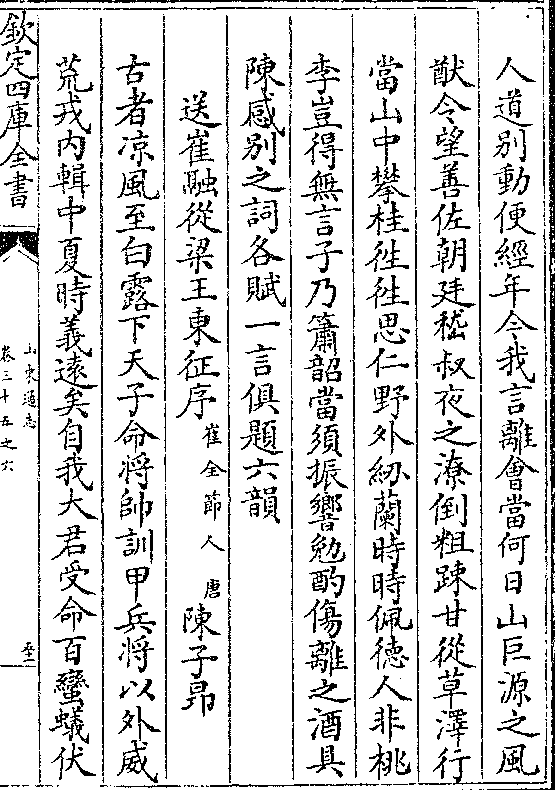 人道别動便經年今我言離會當何日山巨源之風
猷令望善佐朝廷嵇叔夜之潦倒粗踈甘從草澤行
當山中攀桂徃徃思仁野外紉蘭時時佩德人非桃
李豈得無言子乃簫韶當須振響勉酌傷離之酒具
陳感别之詞各賦一言俱題六韻
送崔融從梁王東征序 崔全節人 唐 陳子昻
古者凉風至白露下天子命將帥訓甲兵將以外威
荒戎内輯中夏時義逺矣自我大君受命百蠻蟻伏
欽定四庫全書
山東通志
卷三十五之六